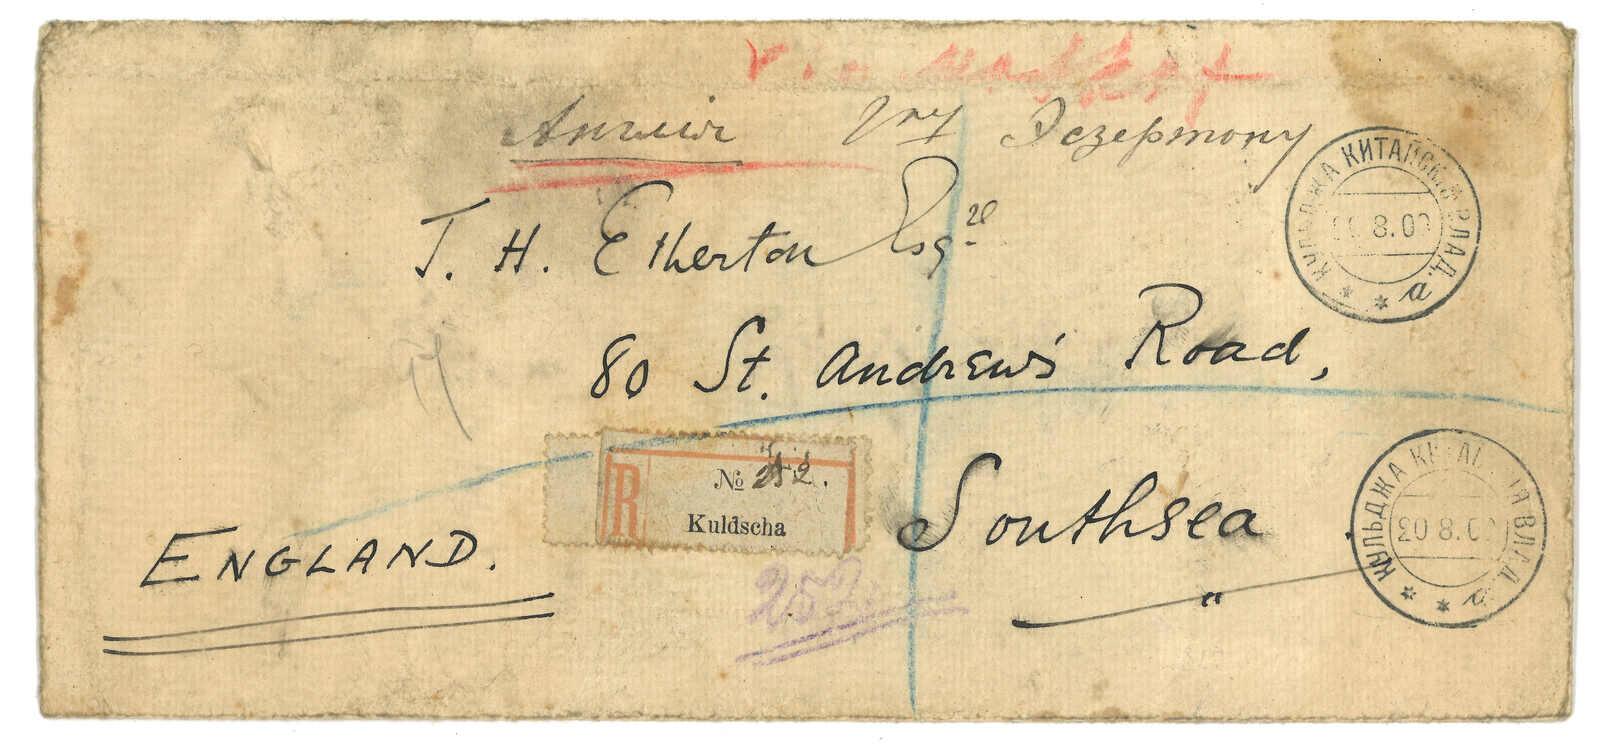 Via
Англия Г-ну Эсзертону
T. H. Etherton Esqre
80 St. Andrew's Road,
Southsea
ENGLAND.
R
№ 252.
Kuldscha
252
КУЛЬДЖА КИТАЙСК. ВЛАД.
8.09
а
КУЛЬДЖА КИТАЙСКІЯ ВЛАД.
20 8.09
а